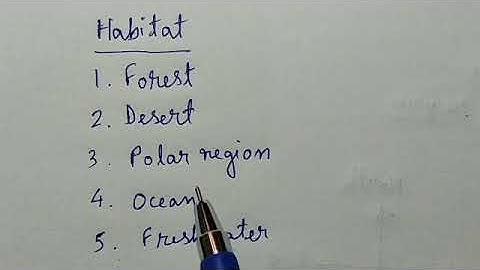 Habitat
1. Forest
2. Desert
3. Polar region
4. Ocean
5. Freshwater